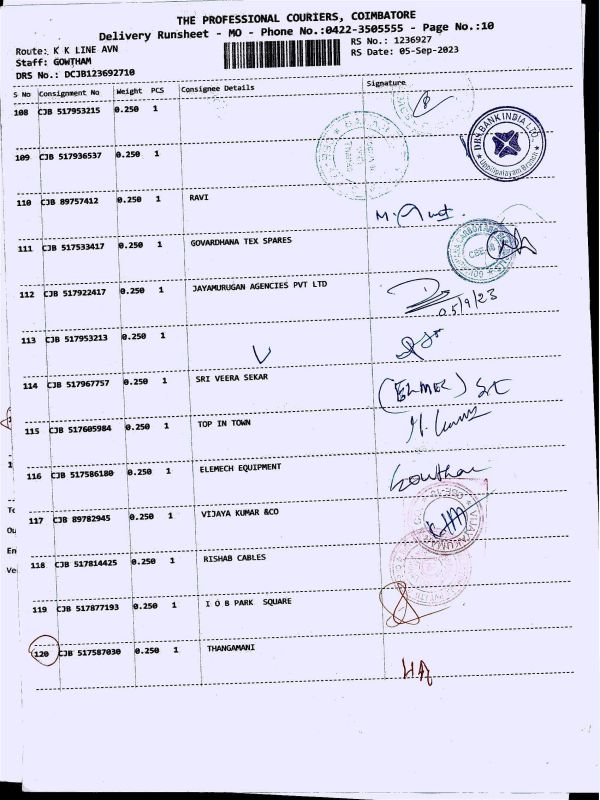 THE PROFESSIONAL COURIERS, COIMBATORE
Delivery Runsheet - MO - Phone No.:0422-3505555 - Page No.:10
Route: K K LINE AVN
RS No.: 1236927
Staff: GOWTHAM
RS Date: 05-Sep-2023
DRS No.: DCJB123692710
S No Consignment No Weight PCS Consignee Details Signature
108 CJB 517953215 0.250 1
109 CJB 517936537 0.250 1
DBS BANK INDIA LTD.
Uppilipalayam Branch
110 CJB 89757412 0.250 1 RAVI
111 CJB 517533417 0.250 1 GOVARDHANA TEX SPARES
112 CJB 517922417 0.250 1 JAYAMURUGAN AGENCIES PVT LTD
05/9/23
113 CJB 517953213 0.250 1
114 CJB 517967757 0.250 1 SRI VEERA SEKAR
115 CJB 517605984 0.250 1 TOP IN TOWN
116 CJB 517586180 0.250 1 ELEMECH EQUIPMENT
117 CJB 89782945 0.250 1 VIJAYA KUMAR &CO
118 CJB 517814425 0.250 1 RISHAB CABLES
119 CJB 517877193 0.250 1 I O B PARK SQUARE
120 CJB 517587030 0.250 1 THANGAMANI